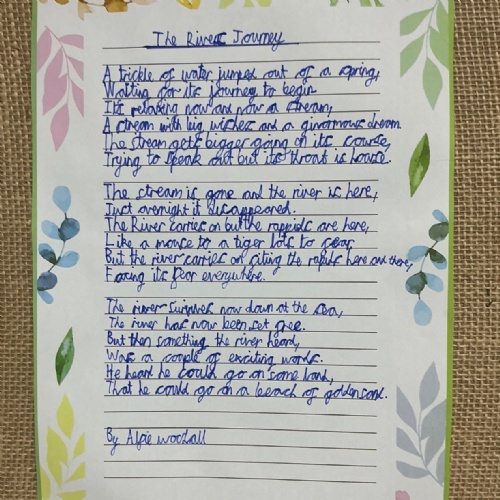 The River Journey
A trickle of water jumped out of a spring,
Waiting for its journey to begin.
It's relaxing now and now a stream,
A stream with big wishes and a ginormous dream.
The stream gets bigger going on its course,
Trying to speak out but its throat is hoarse.
The stream is gone and the river is here,
Just overnight it disappeared.
The River carries on but the rappids are here,
Like a mouse to a tiger lots to fear
But the river carries on the rapids here and there,
Facing its fear everywhere.
The river survives now down at the sea,
The river has now been set free.
But then something the river heard,
Was a couple of exciting words.
He heard he could go on some land,
That he could go on a beach of golden sand.
By Alfie woodall